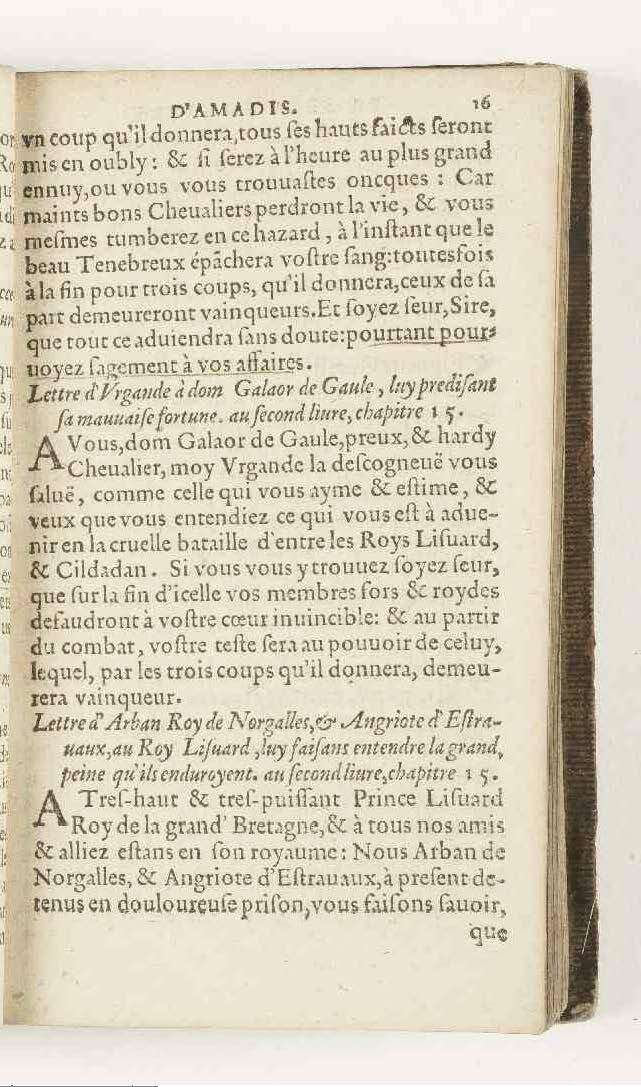 D'AMADIS. 16
vn coup qu'il donnera,tous ſes hauts faicts ſeront
mis en oubly : & ſi ſerez à l'heure au plus grand
ennuy,ou vous vous trouuaſtes oncques : Car
maints bons Cheualiers perdront la vie, & vous
meſmes tumberez en ce hazard, à l'inſtant que le
beau Tenebreux épãchera voſtre ſang:toutesfois
à la fin pour trois coups, qu'il donnera,ceux de ſa
part demeureront vainqueurs.Et ſoyez ſeur,Sire,
que tout ce aduiendra ſans doute:pourtant pour-
uoyez ſagement à vos affaires.
Lettre d'Vrgande à dom Galaor de Gaule, luy prediſant
ſa mauuaiſe fortune. au ſecond liure, chapitre 15.
A Vous,dom Galaor de Gaule,preux,& hardy
Cheualier, moy Vrgande la deſcogneuë vous
ſaluë, comme celle qui vous ayme & eſtime, &
veux que vous entendiez ce qui vous eſt à adue-
nir en la cruelle bataille d'entre les Roys Liſuard,
& Cildadan. Si vous vous y trouuez ſoyez ſeur,
que ſur la fin d'icelle vos membres fors & roydes
defaudront à voſtre cœur inuincible: & au partir
du combat, voſtre teſte ſera au pouuoir de celuy,
lequel, par les trois coups qu'il donnera, demeu-
rera vainqueur.
Lettre d'Arban Roy de Norgalles,& Angriote d'Eſtra-
uaux,au Roy Liſuard,luy faiſans entendre la grand,
peine qu'ils enduroyent. au ſecond liure,chapitre 15.
A Treſ-haut & treſ-puiſſant Prince Liſuard
Roy de la grand' Bretagne,& à tous nos amis
& alliez eſtans en ſon royaume: Nous Arban de
Norgalles, & Angriote d'Eſtrauaux,à preſent de-
tenus en douloureuſe priſon,vous faiſons ſauoir,
que